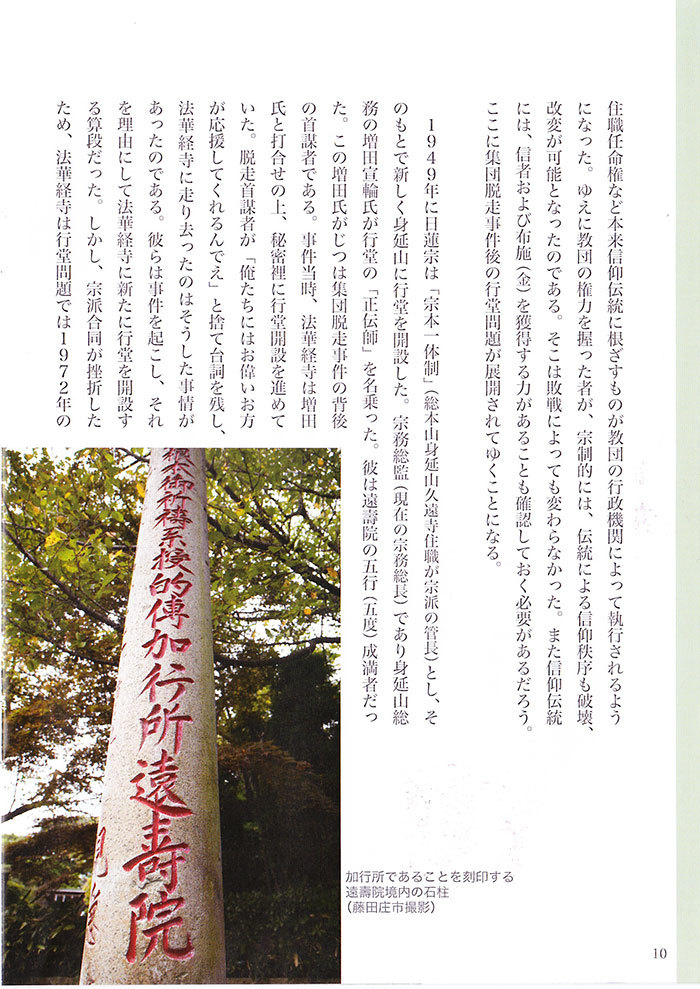 住職任命権など本来信仰伝統に根ざすものが教団の行政機関によって執行されるよう
になった。ゆえに教団の権力を握った者が、宗制的には、伝統による信仰秩序も破壊、
改変が可能となったのである。そこは敗戦によっても変わらなかった。また信仰伝統
には、信者および布施(金)を獲得する力があることも確認しておく必要があるだろう。
ここに集団脱走事件後の行堂問題が展開されてゆくことになる。
1949年に日蓮宗は「宗本一体制」(総本山身延山久遠寺住職が宗派の管長)とし、そ
のもとで新しく身延山に行堂を開設した。宗務総監(現在の宗務総長)であり身延山総
務の増田宣輪氏が行堂の「正伝師」を名乗った。彼は遠壽院の五行(五度)成満者だっ
た。この増田氏がじつは集団脱走事件の背後
の首謀者である。事件当時、法華経寺は増田
氏と打合せの上、秘密裡に行堂開設を進めて
いた。脱走首謀者が「俺たちにはお偉いお方
が応援してくれるんでえ」と捨て台詞を残し、
法華経寺に走り去ったのはそうした事情が
あったのである。彼らは事件を起こし、それ
を理由にして法華経寺に新たに行堂を開設す
る算段だった。しかし、宗派合同が挫折した
ため、法華経寺は行堂問題では1972年の
御祈祷系授的傳加行所遠壽院
加行所であることを刻印する
遠壽院境内の石柱
(藤田庄市撮影)
10